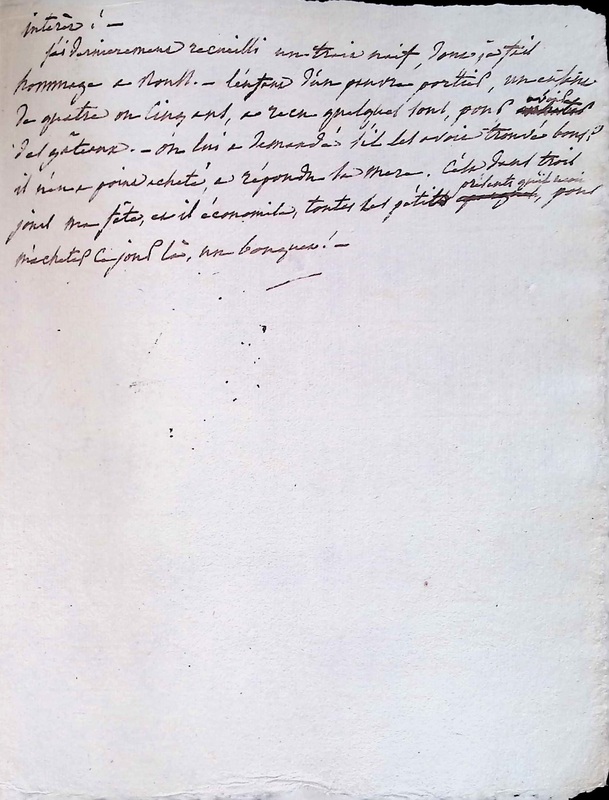 intérès! —
j'ai dernierement recueilli un trais naïf, donc je fais
hommage a — l'enfant d'un pauvre portier, un enfant
de quatre ou cinq ans, a recu quelques sous, pour avoir
des gâteaux. — on lui a demandé s'il les avoit trouvé bons?
il n'en a point acheté, a répondu la mere. C'est dans trois
jours ma fête, et il économise, toutes les petits présents qu'il, pour
m'acheter ce jour là, un bouquet! —